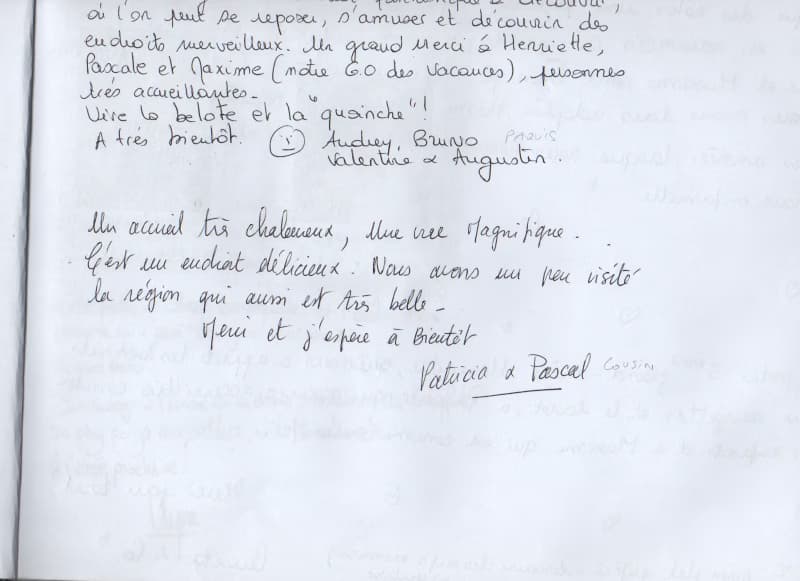 à l'on peut se reposer, s'amuser et découvrir des
endroits merveilleux. Un grand merci à Henriette,
Pascale et Maxime (notre G.O des vacances), personnes
très accueillantes.
Vive la belote et la "quainche"!
A très bientôt. Audrey, Bruno PAQUIS
Valentine & Augustin.
Un accueil très chaleureux, Une vue Magnifique.
C'est un endroit délicieux. Nous avons un peu visité
la région qui aussi est très belle.
Merci et j'espère à Bientôt
Patricia & Pascal Cousin